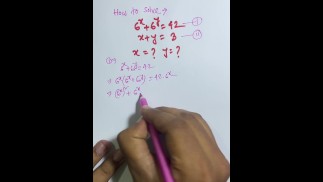 How to solve, ?
6^x + 6^y = 42 — (i)
x + y = 3 — (ii)
x = ? y = ?
6^x + 6^y = 42
⇒ 6^x (6^x + 6^y) = 42 · 6^x
⇒ (6^x)² + 6^x